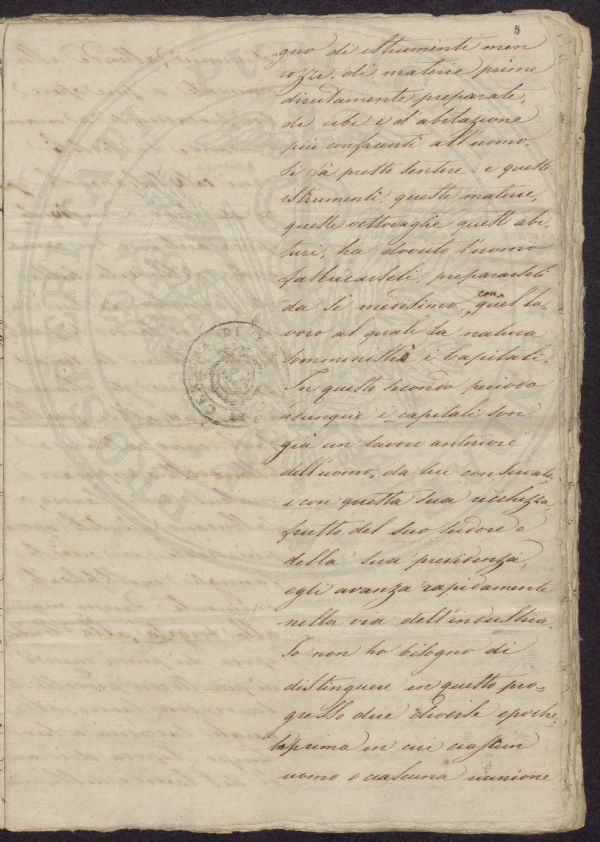 5
gno di istrumenti men
rozzi, di materie prime
direttamente preparate,
di cibi e d'abitazione
più confacenti all'uomo,
si fa presto sentire: e questi
istrumenti, queste materie,
queste vettovaglie questi abi-
turi, ha dovuto l'uomo
fabbricarseli, prepararseli
da se medesimo, con quel la-
voro al quale la natura
somministrò i Capitali.
In questo secondo periodo
adunque i capitali son
già un lavoro anteriore
dell'uomo, da lui conservato,
e con questa sua ricchezza,
frutto del suo sudore e
della sua previdenza,
egli avanza rapidamente
nella via dell'industria.
Io non ho bisogno di
distinguere in questo pro-
gresso due diverse epoche,
la prima in cui ciascun
uomo o ciascuna unione